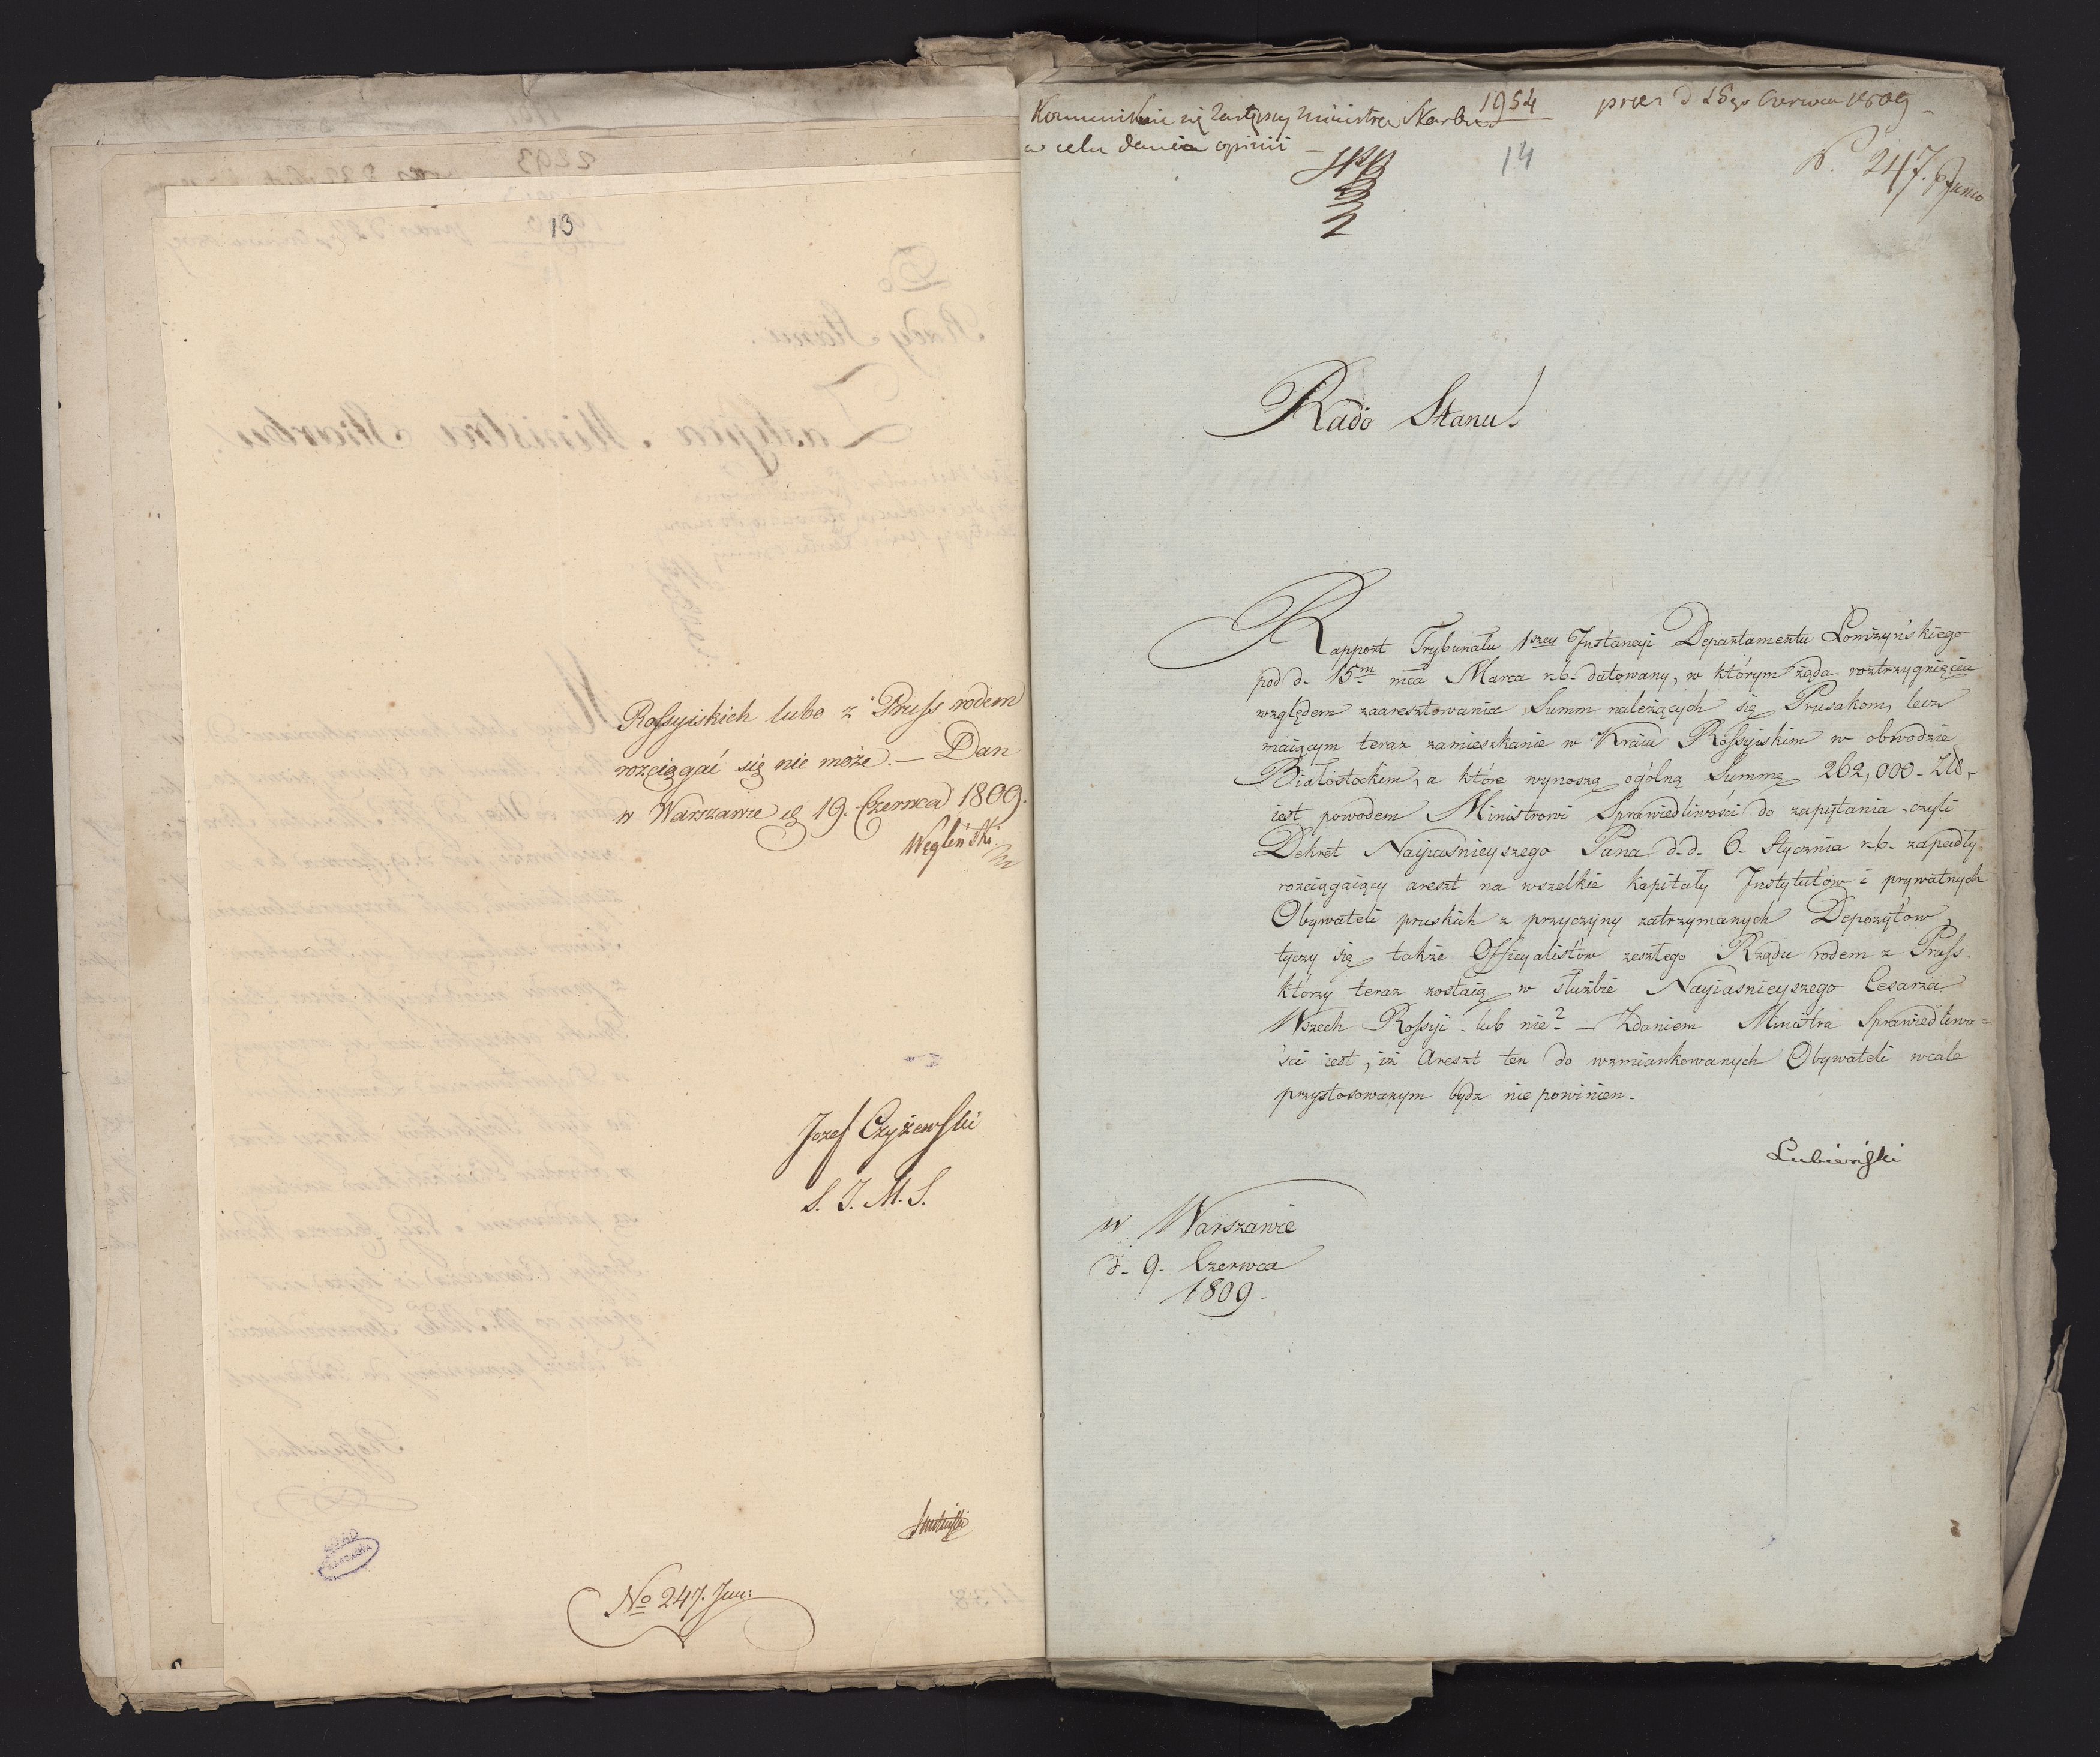 13
Rossyiskich lubo z Pruss rodem
rozciągać się nie może. — Dan
w Warszawie d 19. Czerwca 1809.
Węgleński
Jozef Czyżewski
S. J. M. S.
No 247. Jun:
Kommunikuie się Zastępcy Ministra Skarbu
w celu dania opinii —
1954
14
prez d 15go Czerwca 1809
N. 247. Junio
Rado Stanu!
Rapport Trybunału 1szey Instancyi Departamentu Łomżyńskiego
pod d. 15m mca Marca r. b. datowany, w którym żąda roztrzygnięcia
względem zaaresztowania Summ należących się Prusakom, lecz
maiącym teraz zamieszkanie w Kraiu Rossyiskim w obwodzie
Białostockim, a które wynoszą ogólną Summę 262,000 - Złł,
iest powodem Ministrowi Sprawiedliwości do zapytania, czyli
Dekret Nayiasnieyszego Pana d. d. 6. Stycznia r. b. zapadły
rozciągaiący areszt na wszelkie kapitały Instytutów i prywatnych
Obywateli pruskich z przyczyny zatrzymanych Depozytów,
tyczy się także Officyalistów zeszłego Rządu rodem z Pruss
którzy teraz zostaią w służbie Nayiasnieyszego Cesarza
Wszech Rossyi lub nie? — Zdaniem Ministra Sprawiedliwo=
ści iest, iż Areszt ten do wzmiankowanych Obywateli wcale
przystosowanym bydz nie powinien.
Lubieński
w Warszawie
d. 9. Czerwca
1809.